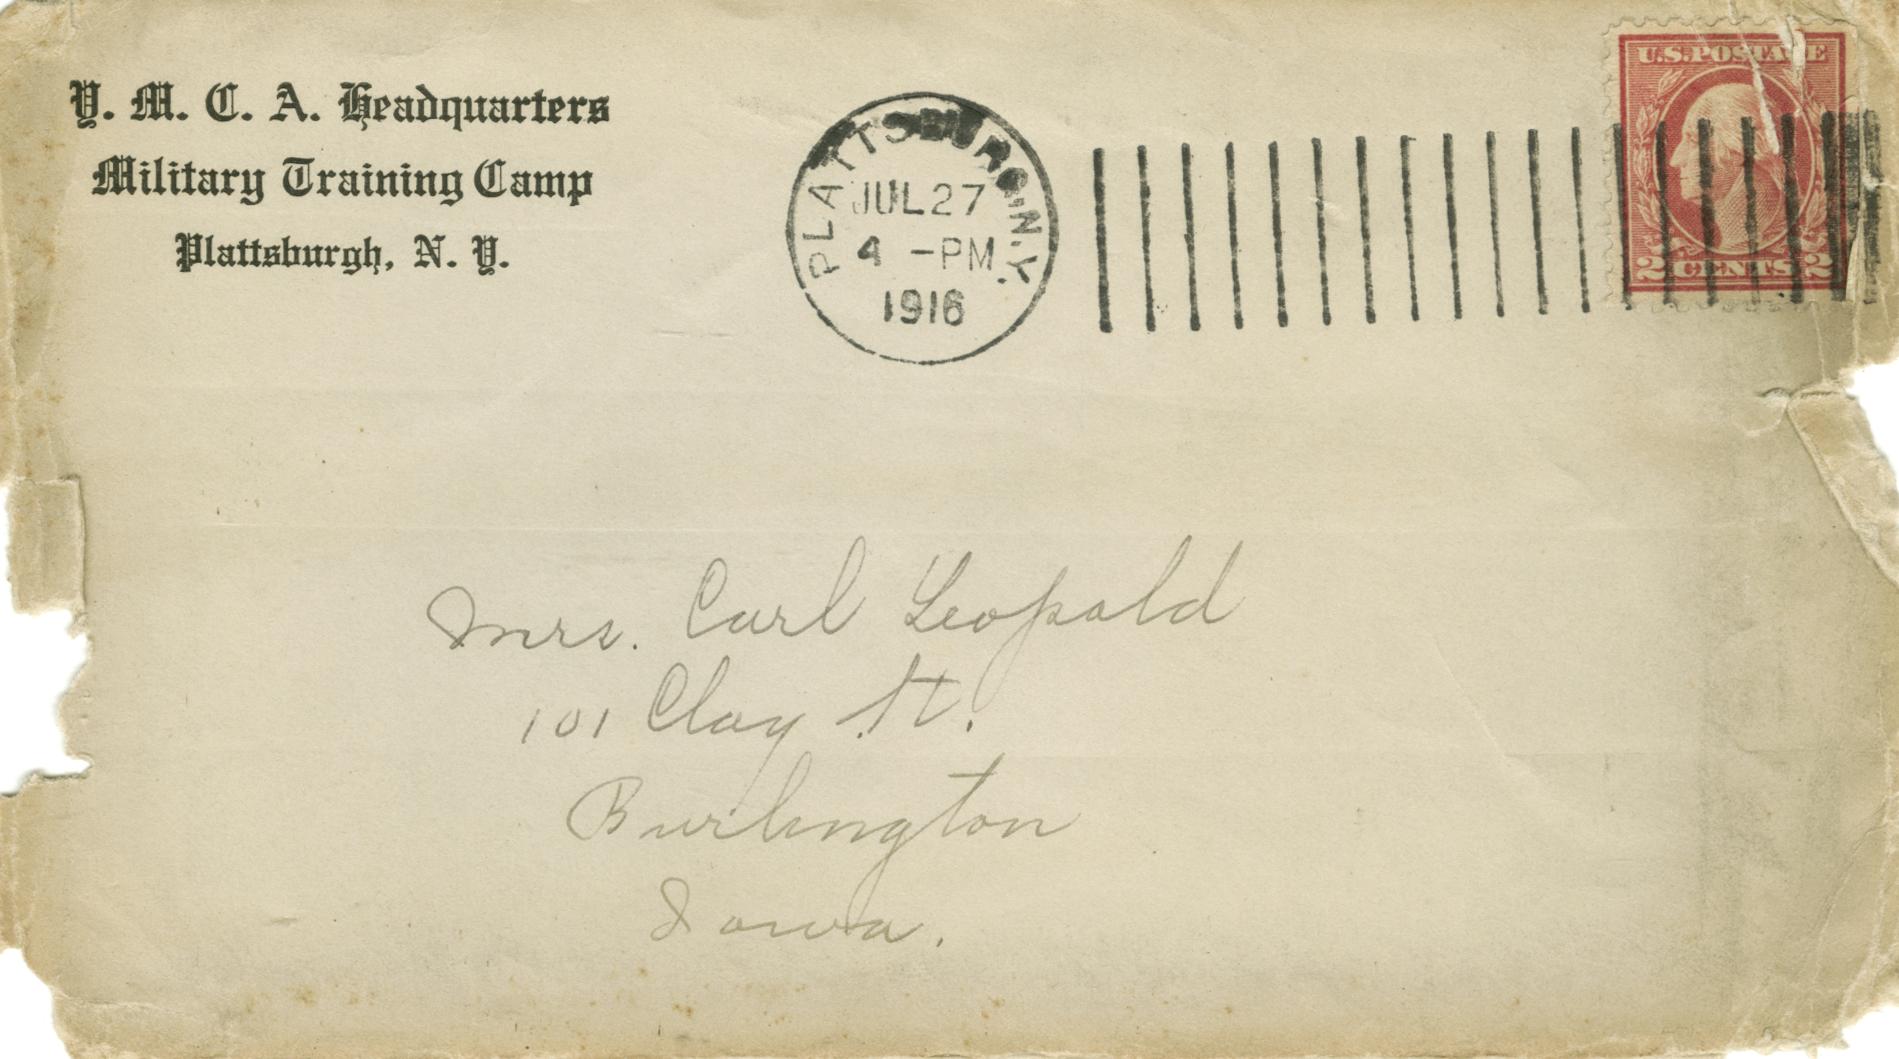 Y. M. C. A. Headquarters
Military Training Camp
Plattsburgh, N. Y.
PLATTSBURG, N.Y.
JUL 27
4 -PM
1916
U.S. POSTAGE
2 CENTS 2
Mrs. Carl Leopold
101 Clay St.
Burlington
Iowa.